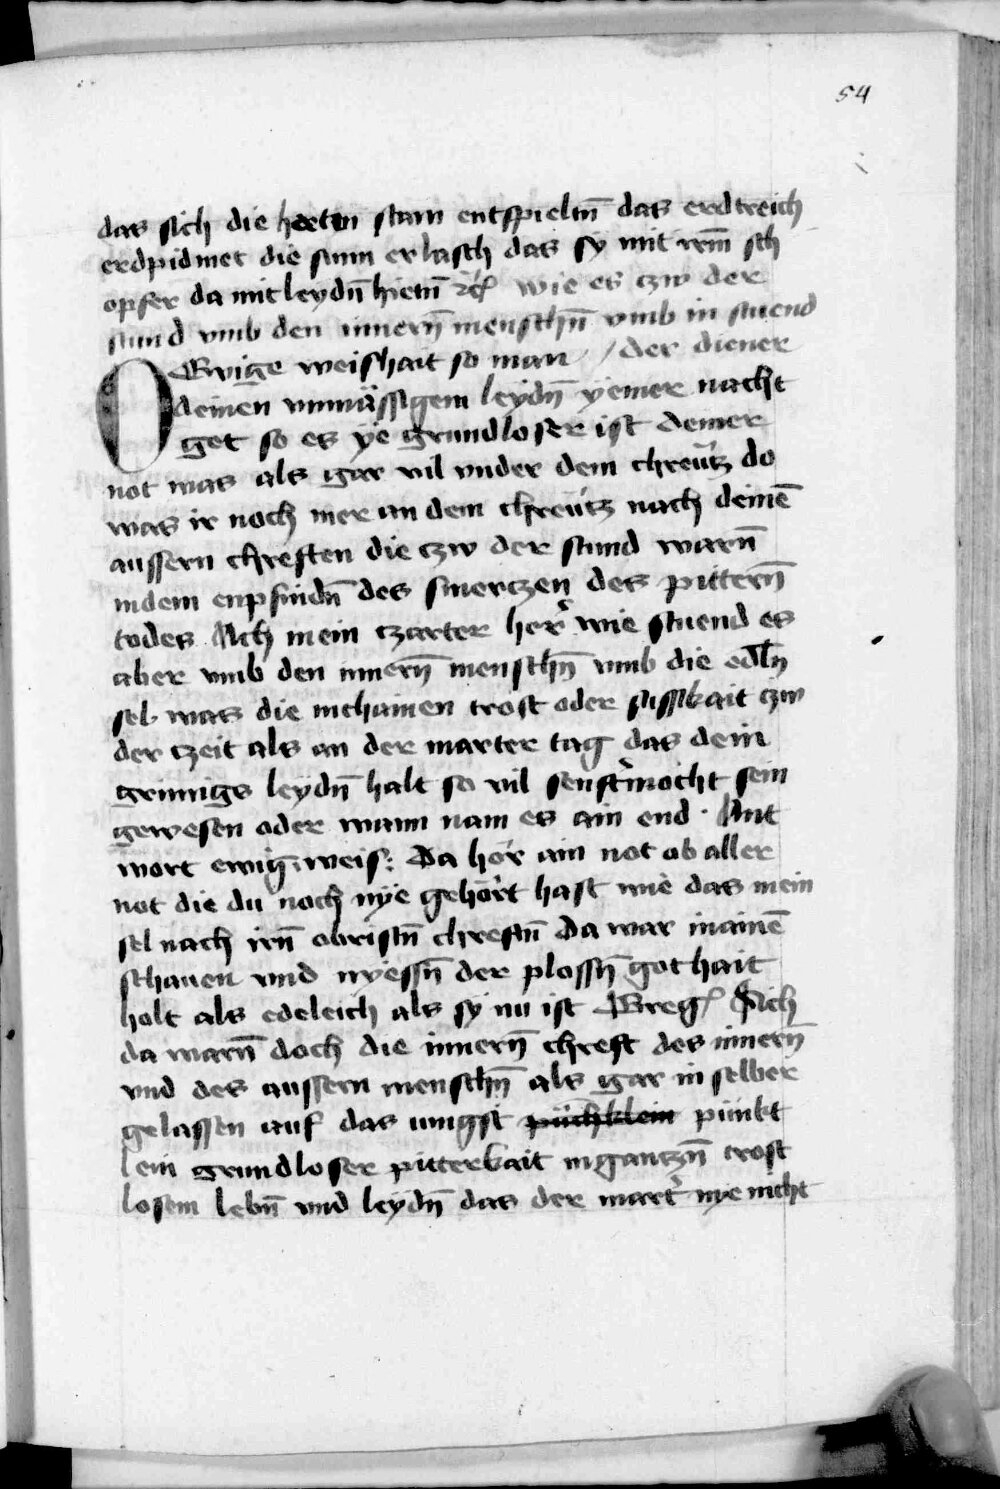 54
das sich die herten stain entspieltn̄ das erdtreich
erdpidmet die sunn erlasch das sy mit irm̄ sch
opfer da mitleydn̄ hietn̄ wie es czw der
stund vmb den innern̄ menschn̄ vmb in stuend
O Ewige weishait so man / der diener
deinen vnmässigem leydn̄ yemer nacht
get so es ye grundloser ist deiner
not was als gar vil vnder dem chreutz do
was ir noch mer an dem chreutz nach deinē
aussern chreften die czw der stund warn̄
indem enpfindn̄ des smerczen des pittern̄
todes Ach mein czarter her wie stuend es
aber vmb den innern̄ menschn̄ vmb die edln̄
sel was die inchainen trost oder sussikait czw
der czeit als an der marter tag das dein
grimigs leydn̄ halt so vil senft mocht sein
gewesen oder wann nam es ain end · Ant
wort ewig weis: Da hör ain not ob aller
not die du noch nye gehört hast wie das mein
sel nach irn̄ obristn̄ chreftn̄ Da war inainē
schauen vnd nyessn̄ der plossn̄ gothait
holt als edeleich als sy nu ist Ach
da warn̄ doch die innern̄ chreft des innern̄
vnd des aussern menschn̄ als gar in selber
gelassen auf das iungst püchklein pünkt
lein grundloser pitterkait ingantzn̄ trost
losem lebn̄ vnd leydn̄ das der mart̄ nye nicht